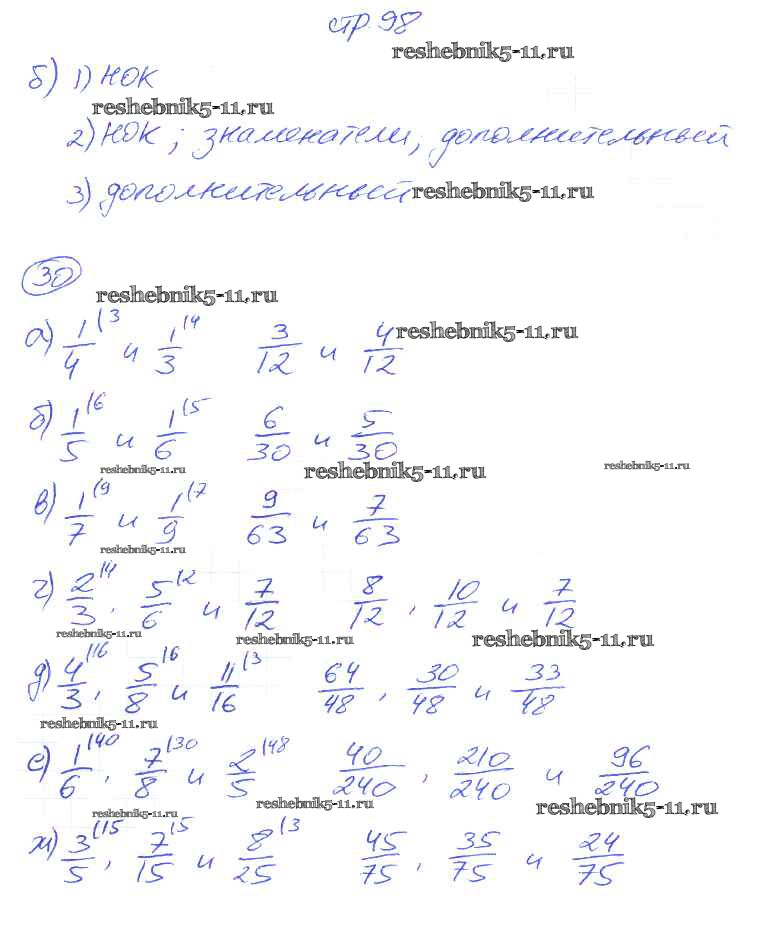 стр. 98
reshebnik5-11.ru
б) 1) НОК
reshebnik5-11.ru
2) НОК; знаменатели; дополнительный
3) дополнительный reshebnik5-11.ru
30
reshebnik5-11.ru
а) 1/4 (3 и 1/3 (4 3/12 и 4/12 reshebnik5-11.ru
б) 1/5 (6 и 1/6 (5 6/30 и 5/30
reshebnik5-11.ru reshebnik5-11.ru reshebnik5-11.ru
в) 1/7 (9 и 1/9 (7 9/63 и 7/63
reshebnik5-11.ru
г) 2/3 (4, 5/6 (2 и 7/12 8/12, 10/12 и 7/12
reshebnik5-11.ru reshebnik5-11.ru reshebnik5-11.ru
д) 4/3 (16, 5/8 (6 и 11/16 (3 64/48, 30/48 и 33/48
reshebnik5-11.ru
е) 1/6 (40, 7/8 (30 и 2/5 (48 40/240, 210/240 и 96/240
reshebnik5-11.ru reshebnik5-11.ru reshebnik5-11.ru
ж) 3/5 (15, 7/15 (5 и 8/25 (3 45/75, 35/75 и 24/75